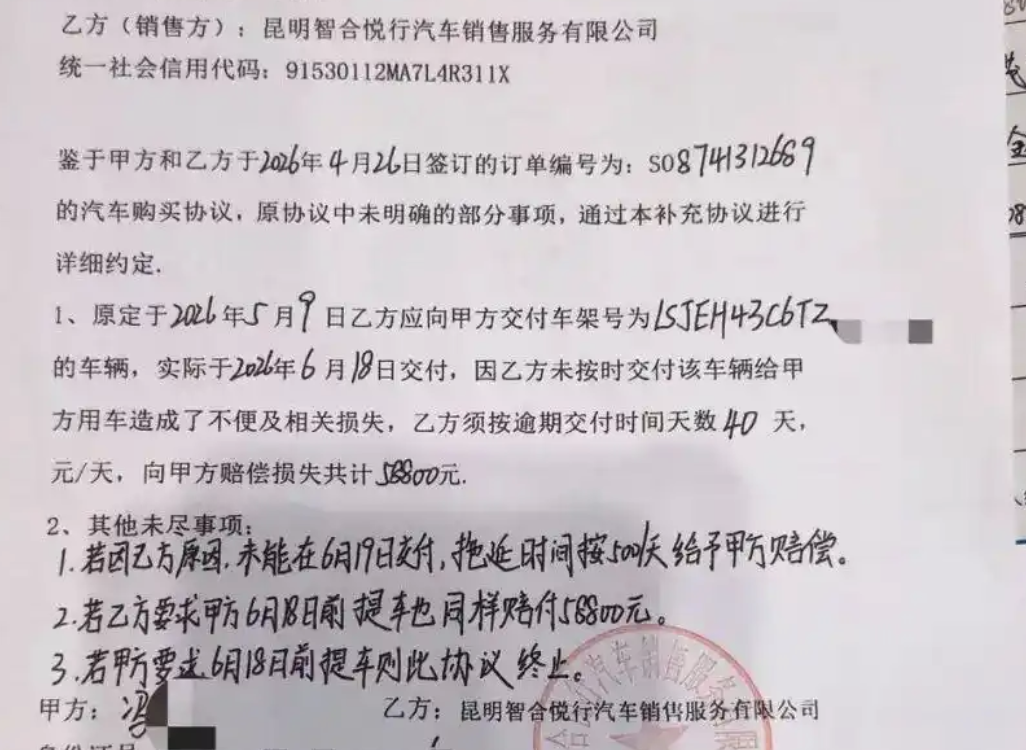 乙方（销售方）：昆明智合悦行汽车销售服务有限公司
统一社会信用代码：91530112MA7L4R311X
鉴于甲方和乙方于2026年4月26日签订的订单编号为：SO8741312689
的汽车购买协议，原协议中未明确的部分事项，通过本补充协议进行
详细约定.
1、原定于2026年5月9日乙方应向甲方交付车架号为LSJEH43C6TZ
的车辆，实际于2026年6月18日交付，因乙方未按时交付该车辆给甲
方用车造成了不便及相关损失，乙方须按逾期交付时间天数40天，
元/天，向甲方赔偿损失共计58800元.
2、其他未尽事项：
1.若因乙方原因.未能在6月19日交付,拖延时间按500/天给予甲方赔偿。
2.若乙方要求甲方6月18日前提车也同样赔付58800元。
3.若甲方要求6月18日前提车则此协议终止。
甲方：冯 乙方：昆明智合悦行汽车销售服务有限公司
汽车销售服务有限